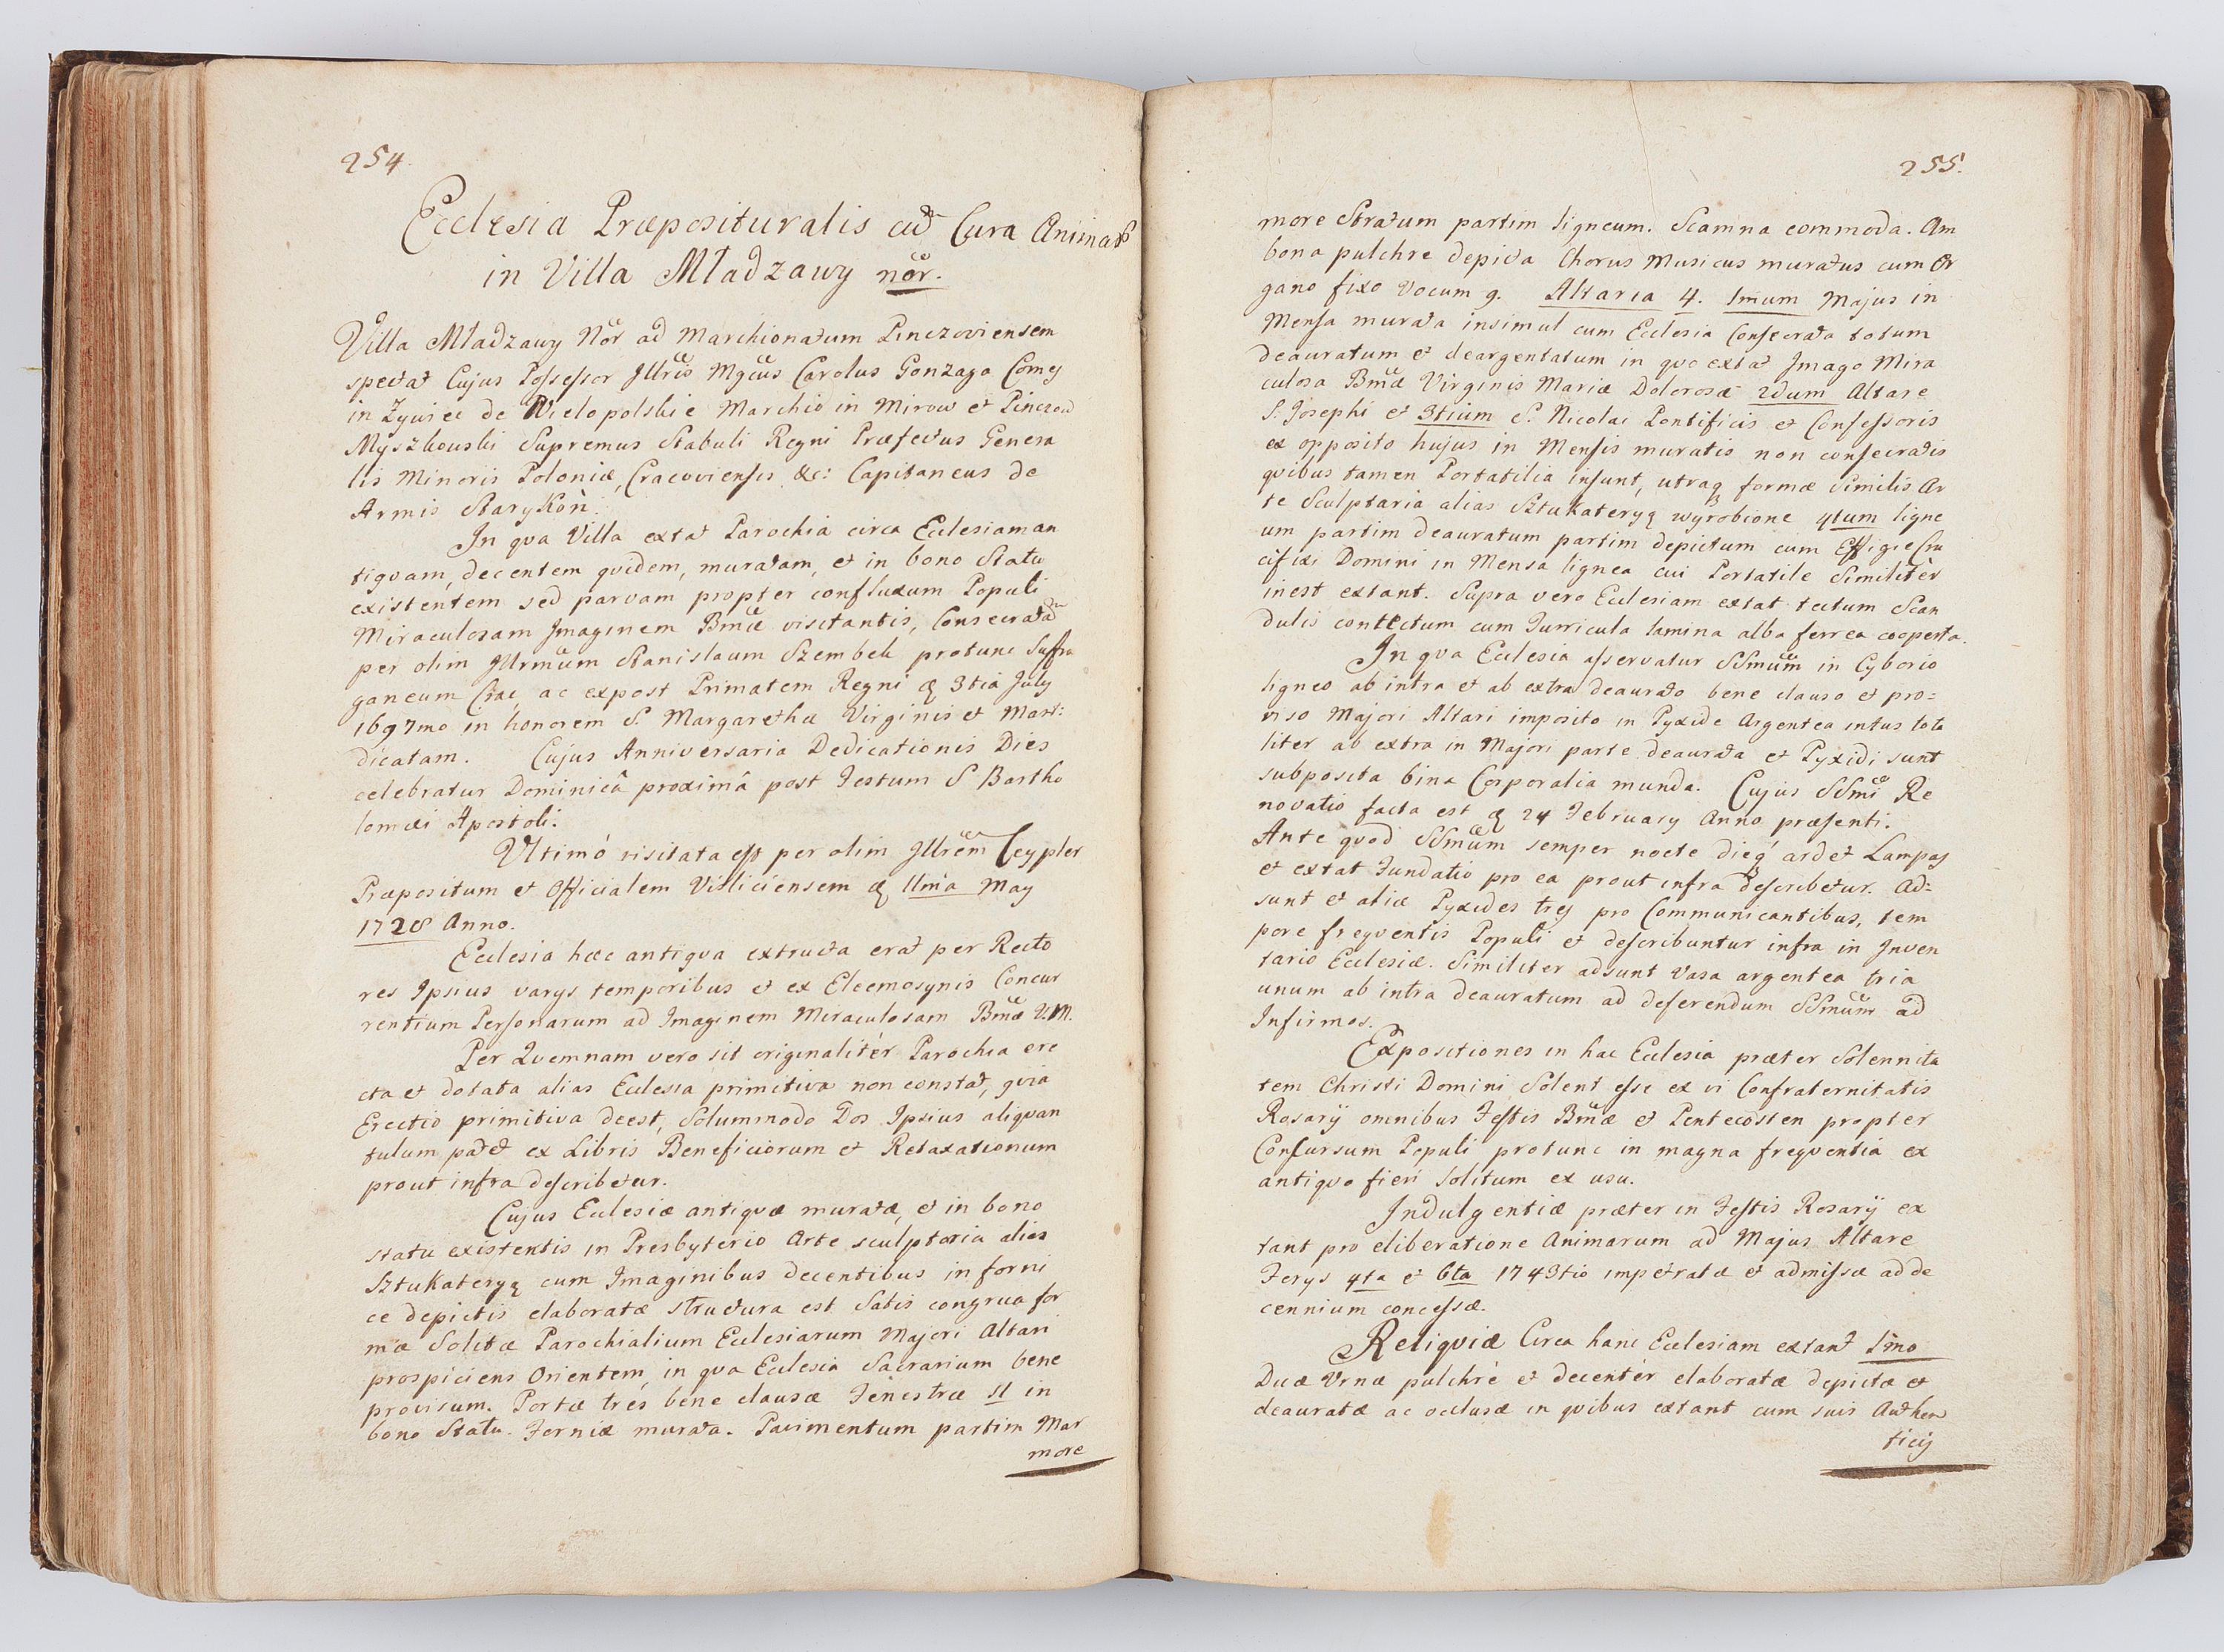 254.
Ecclesia Præposituralis cū Cura Animar̄
in Villa Mładzawy nōr.
Villa Mładzawy Nōr ad Marchionatum Pinczoviensem
spectat Cujus Possessor Jllris Mgcus Carolus Gonzaga Comes
in Zywiec de Wielopolskie Marchio in Mirow et Pinczow
Myszkowski Supremus Stabuli Regni Præfectus Genera
lis Minoris Poloniæ, Cracoviensis &c: Capitaneus de
Armis Starykoń.
In qva Villa extat Parochia circa Ecclesiam an
tiqvam, decentem qvidem, muratam, et in bono Statu
existentem sed parvam propter confluxum Populi
Miraculosam Jmaginem Bmæ visitantis, Consecratam
per olim Jllrmum Stanislaum Szembek protunc Sufra
ganeum Crac, ac expost Primatem Regni d 3tia July
1697mo in honorem S. Margarethæ Virginis et Mart:
dicatam. Cujus Anniversaria Dedicationis Dies
celebratur Dominicâ proximâ post Festum S Bartho
lomæi Apostoli.
Ultimó visitata est per olim Jllrem Ceypler
Præpositum et Officialem Visliciensem d 11ma May
1728 Anno.
Ecclesia hæc antiqva extructa erat per Recto
res Ipsius varys temporibus et ex Eleemosynis Concur
rentium Personarum ad Jmaginem Miraculosam Bmæ V.M.
Per Qvemnam vero sit originalitér Parochia ere
cta et dotata alias Ecclesia primitiva non constat, qvia
Erectio primitiva deest, Solummodo Dos Ipsius aliqvan
tulum patet ex Libris Beneficiorum et Retaxationum
prout infra describetur.
Cujus Ecclesiæ antiqvæ muratæ, et in bono
statu existentis in Presbyterio Arte sculptoria alias
Sztukateryą cum Jmaginibus decentibus in forni
ce depictis elaboratæ structura est Satis congrua for
mæ Solitæ Parochialium Ecclesiarum Majori Altari
prospiciens Orientem, in qva Ecclesia Sacrarium bene
provisum. Portæ trés bene clausæ Fenestræ 11 in
bono Statu. Forniæ murata. Pavimentum partim Mar
more
255.
more Stratum partim ligneum. Scamna commoda. Am
bona pulchre depicta Chorus Musicus muratus cum Or
gano fixo Vocum 9. Altaria 4. 1mum Majus in
Mensa murata insimul cum Ecclesia Consecrata totum
deauratum et deargentatum in qvo extat Jmago Mira
culosa Bmæ Virginis Mariæ Dolorosæ 2dum Altare
S. Josephi et 3tium S. Nicolai Pontificis et Confessoris
ex opposito hujus in Mensis muratis non consecratis
qvibus tamen Portatilia insunt, utraq formæ Similis Ar
te Sculptaria alias Sztukateryą wyrobione 4tum ligne
um partim deauratum partim depictum cum Effigie Cru
cifixi Domini in Mensa lignea cui Portatile Similitèr
inest extant. Supra vero Ecclesiam extat tectum Scan
dulis contectum cum Turricula lamina alba ferrea cooperta.
In qva Ecclesia asservatur SSmum in Cyborio
ligneo ab intra et ab extra deaurato bene clauso et pro=
viso Majori Altari imposito in Pyxide Argentea intus tota
liter ab extra in Majori parte deaurata et Pyxidi sunt
subposita bina Corporalia munda. Cujus SSmi Re
novatio facta est d 24 February Anno præsenti.
Ante qvod SSmum semper nocte dieq ardet Lampas
et extat Fundatio pro ea prout infra describetur. Ad=
sunt et aliæ Pyxides tres pro Communicantibus, tem
pore freqventis Populi et describuntur infra in Inven
tario Ecclesiæ. Similiter adsunt Vasa argentea tria
unum ab intra deauratum ad deferendum SSmum ad
Infirmos.
Expositiones in hac Ecclesia præter Solennita
tem Christi Domini Solent esse ex vi Confraternitatis
Rosarÿ omnibus Festis Bmæ et Pentecosten propter
Concursum Populi protunc in magna freqventiá ex
antiqvo fieri Solitum ex usu.
Indulgentiæ præter in Festis Rosarÿ ex
tant pro eliberatione Animarum ad Majus Altare
Ferys 4ta et 6ta 1743tio impetratæ et admissæ ad de
cennium concessæ.
Reliqviæ Circa hanc Ecclesiam extant 1mo
Duæ Vrnæ pulchré et decentér elaboratæ depictæ et
deauratæ ac oclusæ in qvibus extant cum suis Authen
ticis